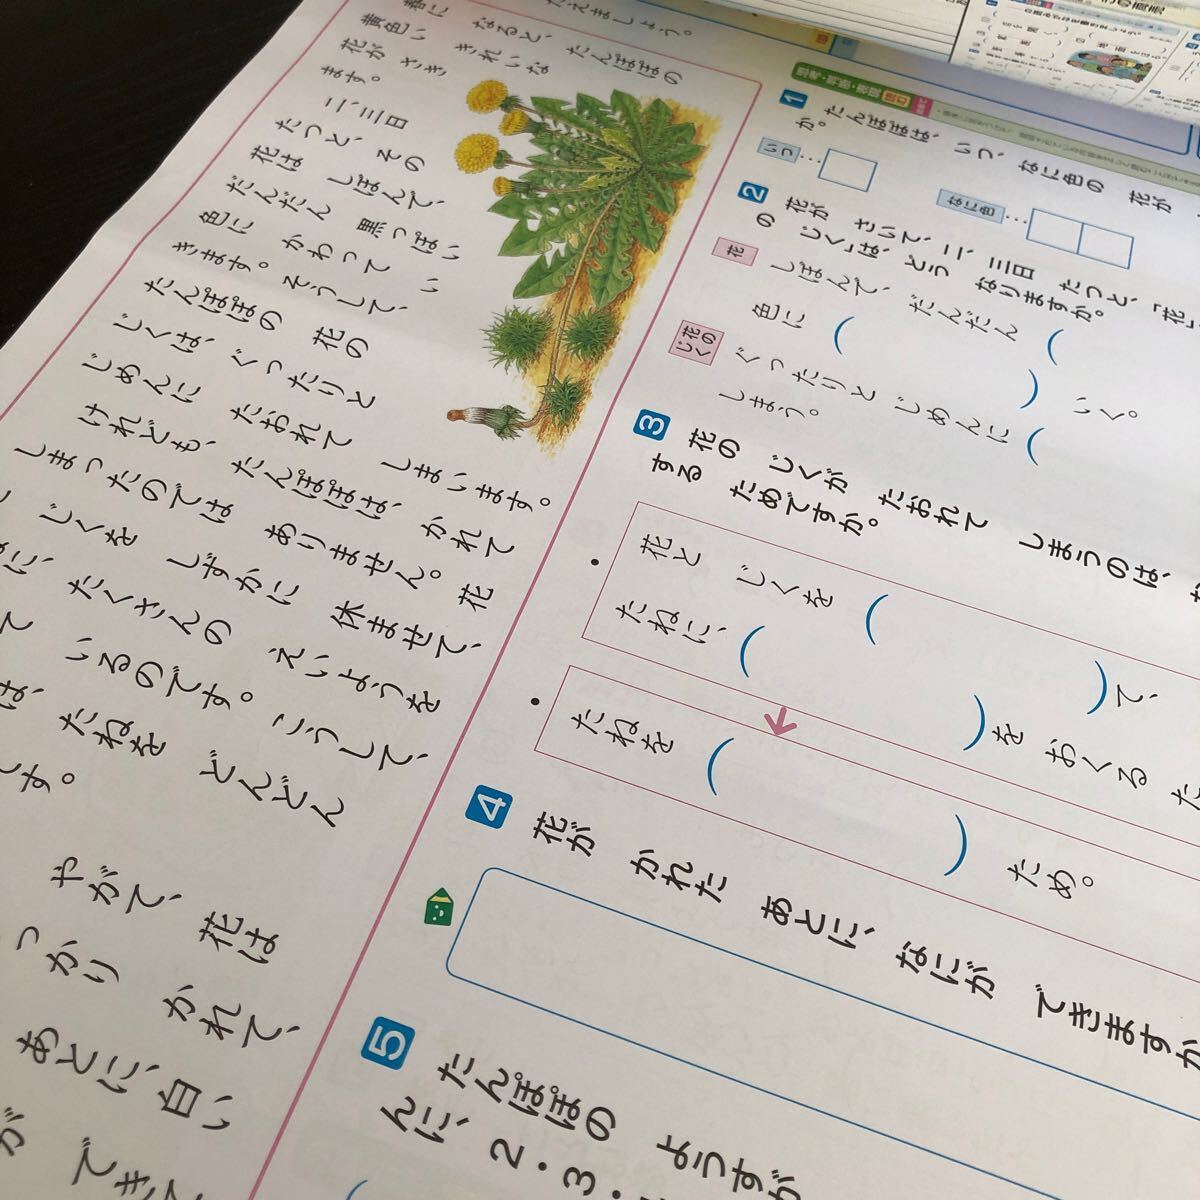 たえましょう。
春に なると、たんぽぽの
黄色い きれいな
花が さき
ます。
二、三日
たつと、その
花は しぼんで、
だんだん 黒っぽい
色に かわって い
きます。そうして、
たんぽぽの 花の
じくは、ぐったりと
じめんに たおれて しまいます。
けれども、たんぽぽは、かれて
しまったのでは ありません。花
じくを しずかに 休ませて、
に、たくさんの えいようを
て いるのです。こうして、
は、たねを どんどん
です。
やがて、花は
っかり かれて、
あとに、白い
が できて
思考・判断・表現 読む
1 たんぽぽは、いつ、なに色の 花が
か。
いつ…
なに色…
2 花が さいて、二、三日 たつと、「花」
の じく」は、どう なりますか。
花
しぼんで、だんだん（
色に（ ）いく。
花の
じく
ぐったりと じめんに（
しまう。
3 花の じくが たおれて しまうのは、
する ためですか。
・花と じくを（ ）て、
たねに、（ ）を おくる た
・たねを（ ）ため。
4 花が かれた あとに、なにが できますか
5 たんぽぽの ようすが
んに、2・3・